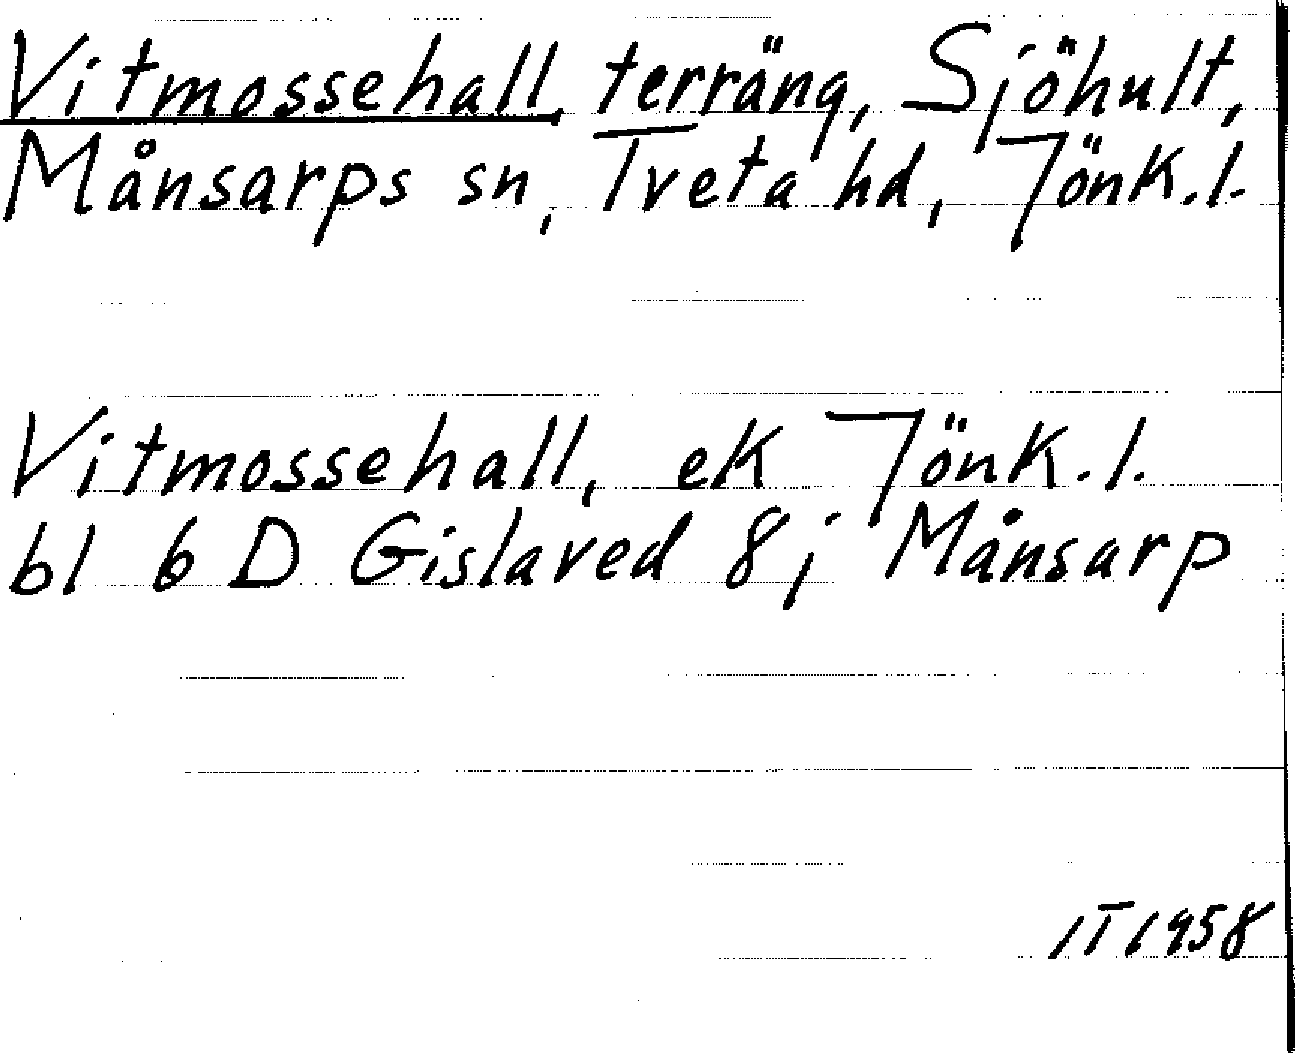 Vitmossehall, terräng, Sjöhult,
Månsarps sn, Tveta hd, Jönk.l.
Vitmossehall, ek Jönk.l.
bl 6 D Gislaved 8j Månsarp
IT 1958